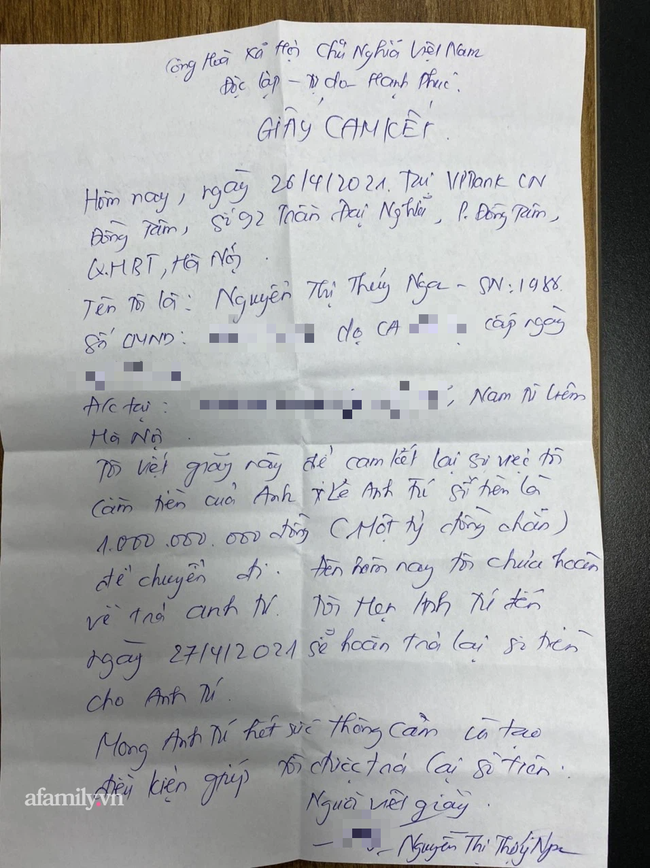 Cộng Hoà Xã Hội Chủ Nghĩa Việt Nam
Độc lập - Tự do Hạnh Phúc.
GIẤY CAM KẾT.
Hôm nay, ngày 26/4/2021. Tại VPBank CN
Đồng Tâm, Số 92 Trần Đại Nghĩa, P. Đồng Tâm,
Q.HBT, Hà Nội.
Tên tôi là: Nguyễn Thị Thúy Nga - SN: 1988
Số CMND: do CA cấp ngày
Đ/c tại: , Nam Từ Liêm
Hà Nội.
Tôi viết giấy này để cam kết lại sự việc tôi
cầm tiền của Anh Lê Anh Tú số tiền là
1.000.000.000 đồng (Một tỷ đồng chẵn)
để chuyển đi. Đến hôm nay tôi chưa hoàn
về trả anh Tú. Tôi Hẹn Anh Tú đến
ngày 27/4/2021 sẽ hoàn trả lại số tiền
cho Anh Tú.
Mong Anh Tú hết sức thông cảm và tạo
điều kiện giúp tôi được trả lại số tiền.
Người viết giấy.
Nguyễn Thị Thúy Nga
afamily.vn